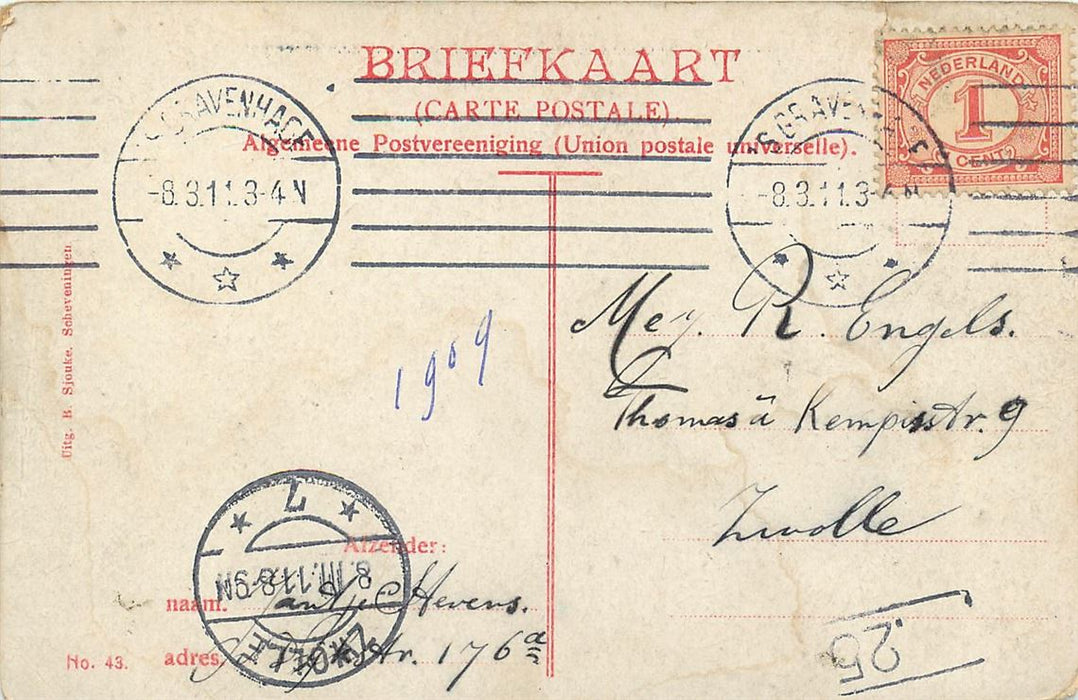 BRIEFKAART
(CARTE POSTALE).
Algemeene Postvereeniging (Union postale universelle).
'S GRAVENHAGE
-8.3.11.3-4 N
'S GRAVENHAGE
-8.3.11.3-4 N
NEDERLAND
1
CENT
Uitg. B. Sjouke. Scheveningen
1909
Mej. R. Engels.
Thomas à Kempisstr. 9
Zwolle
Afzender:
naam. Stevens.
adres str. 176a
ZWOLLE
8.III.11.8-9N
7
No. 43.
25